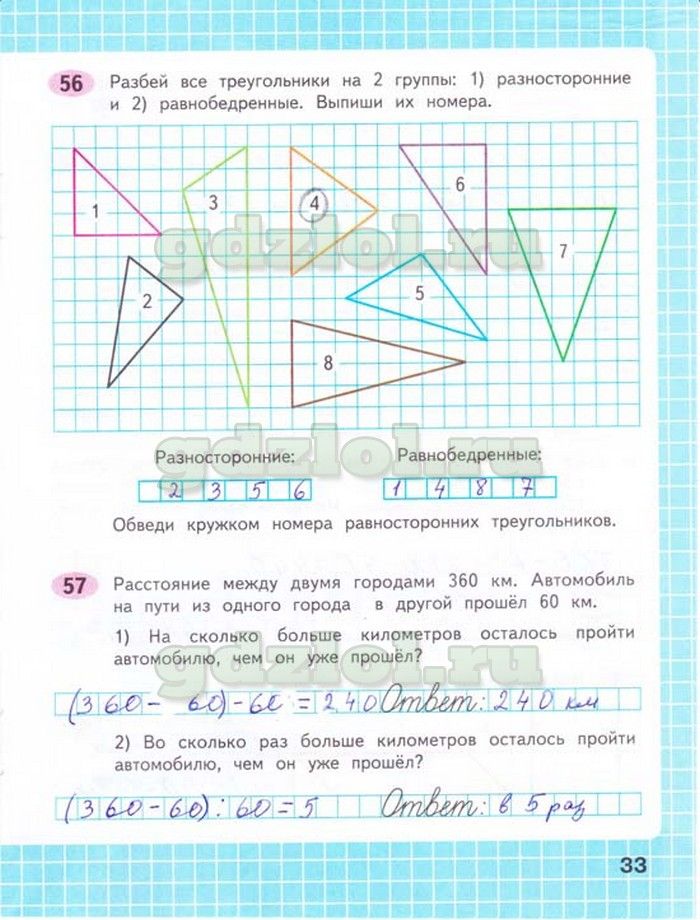 56 Разбей все треугольники на 2 группы: 1) разносторонние
и 2) равнобедренные. Выпиши их номера.
1
2
3
4
5
6
7
8
gdzlol.ru
gdzlol.ru
Разносторонние: Равнобедренные:
2 3 5 6 1 4 8 7
Обведи кружком номера равносторонних треугольников.
57 Расстояние между двумя городами 360 км. Автомобиль
на пути из одного города в другой прошёл 60 км.
1) На сколько больше километров осталось пройти
автомобилю, чем он уже прошёл?
gdzlol.ru
(360 - 60) - 60 = 240 Ответ: 240 км
2) Во сколько раз больше километров осталось пройти
автомобилю, чем он уже прошёл?
(360 - 60) : 60 = 5 Ответ: в 5 раз
33